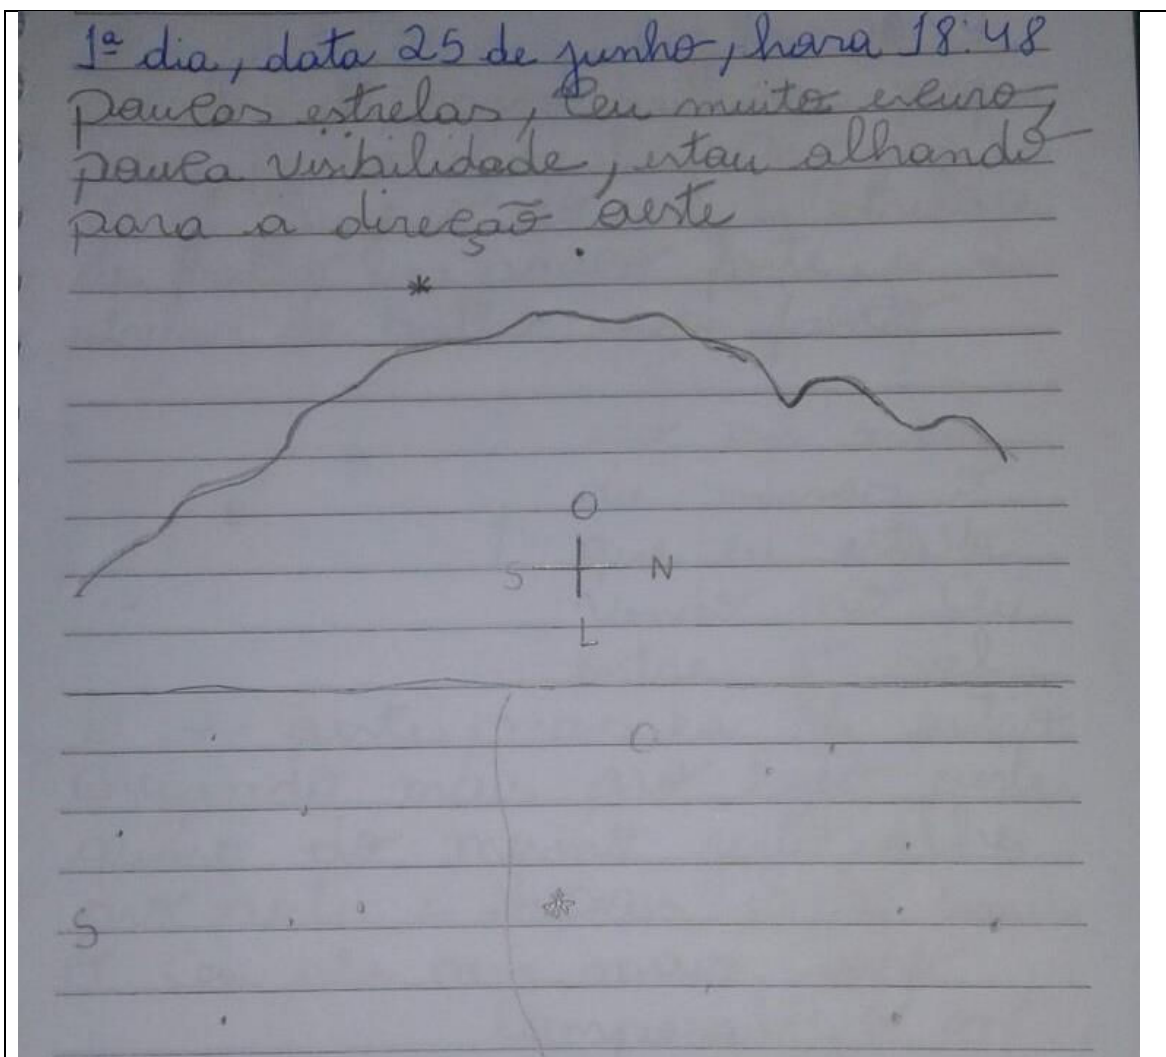 1ª dia, data 25 de junho, hora 18:48
poucas estrelas, ceu muito escuro,
pouca visibilidade, estou olhando
para a direção oeste
O
S N
L
O
S